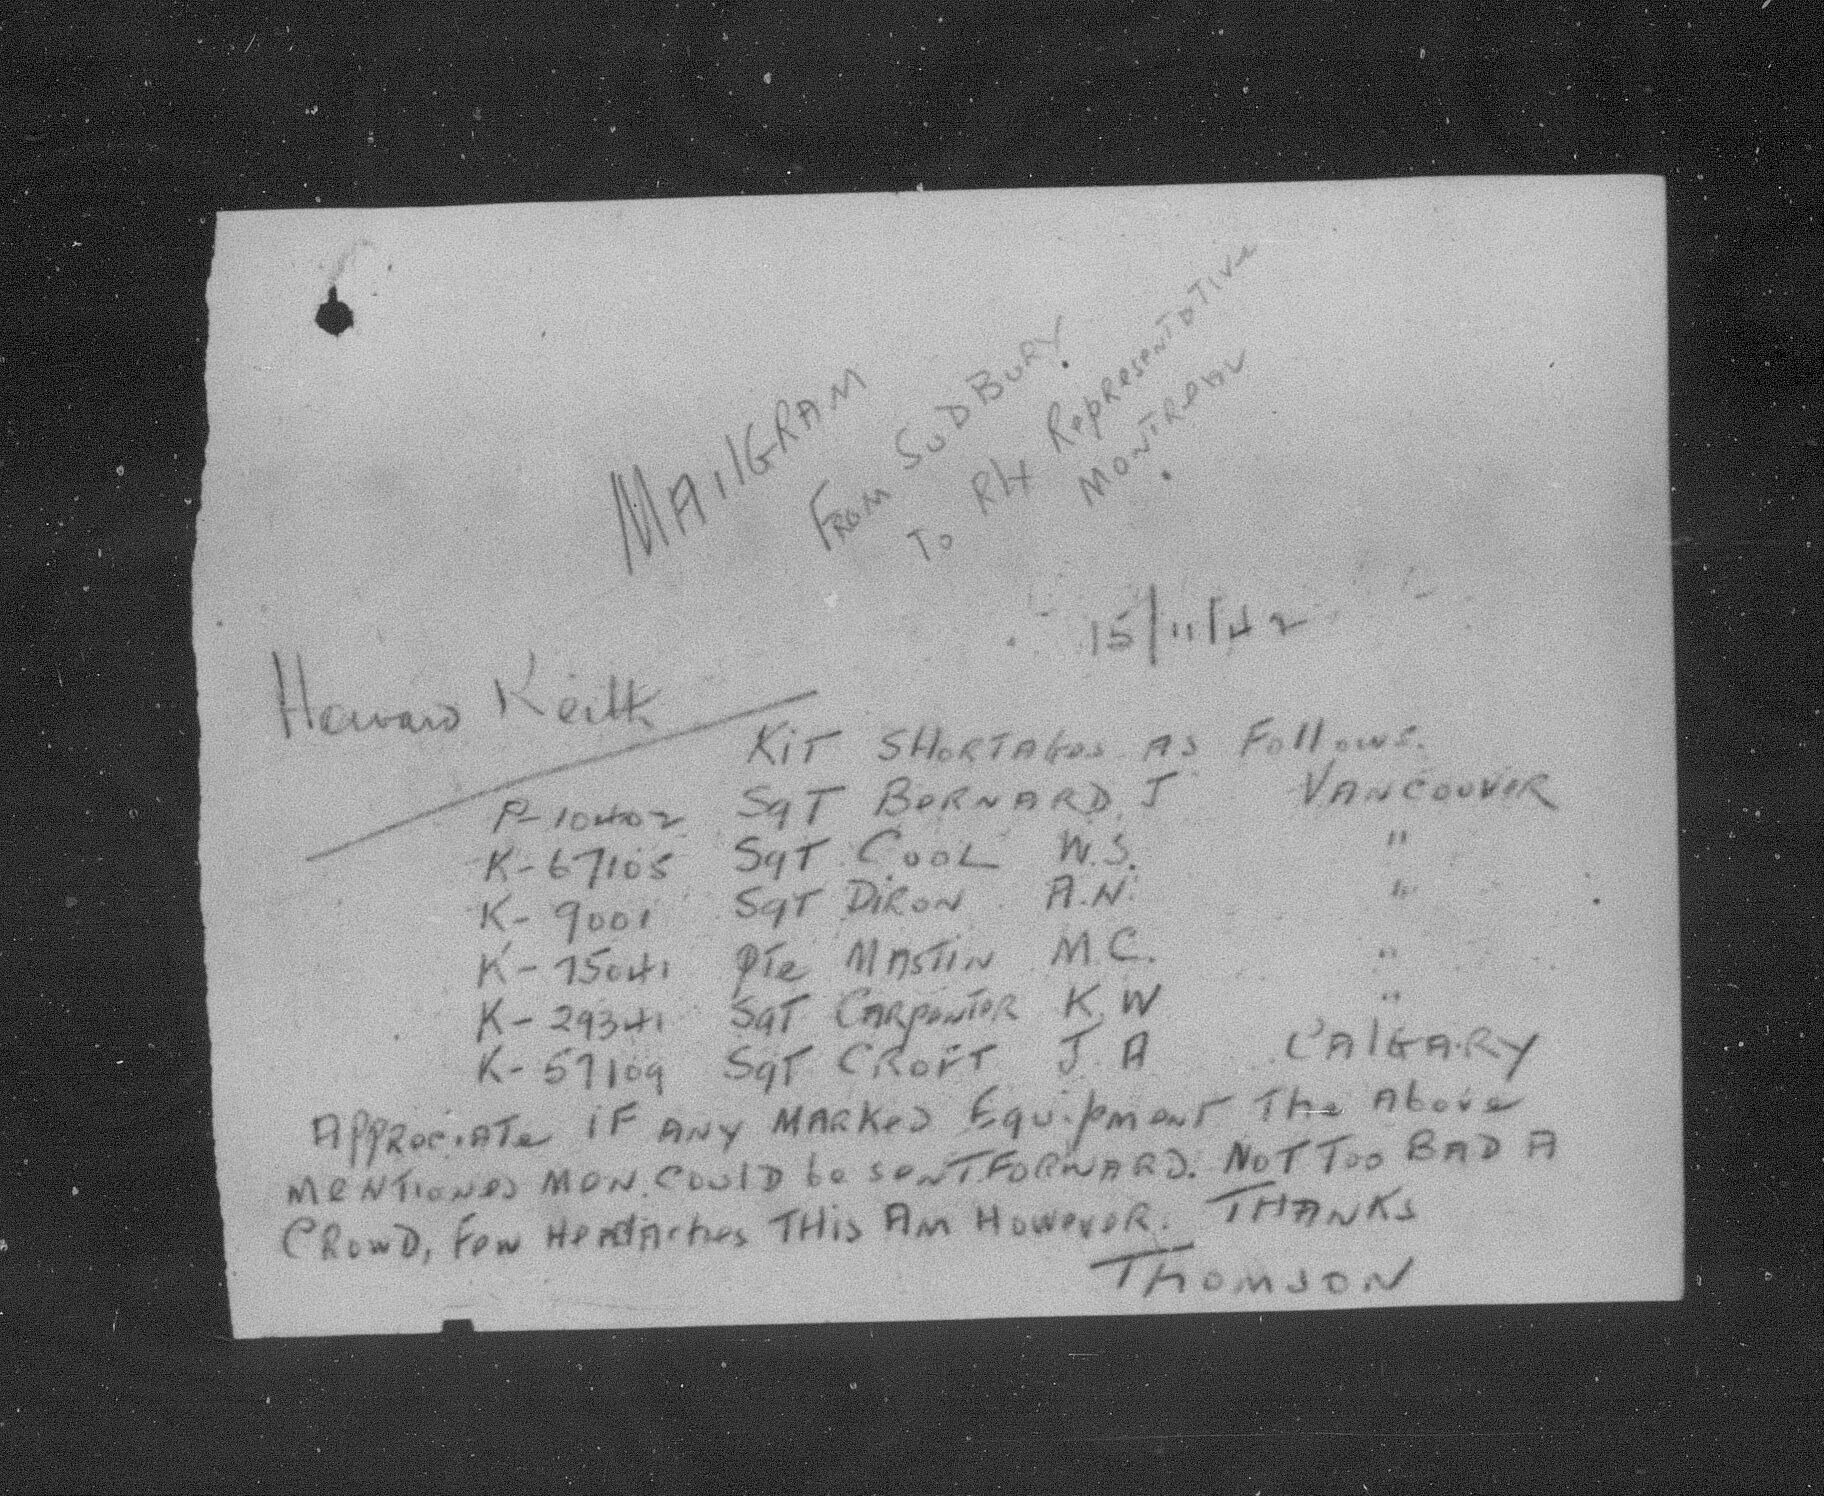 MAILGRAM
FROM SUDBURY.
TO RH Representative
MONTREAL.
15/11/42
Howard Keith
KIT SHORTAGES AS Follows.
P-10402 SgT BERNARD, J VANCOUVER
K-67105 SgT COOL W.S. "
K-9001 SgT DIRON A.N. "
K-75041 PTe MASTIN M.C. "
K-29341 SgT CARPENTER K.W "
K-57109 SgT CROFT J.A CALGARY
APPReciATe IF ANY MARKED Equipment The Above
MENTIONED MEN. COULD be SENT FORWARD. NOT Too BAD A
CROWD, Few HeadAches THis AM However. THANKS
THOMSON